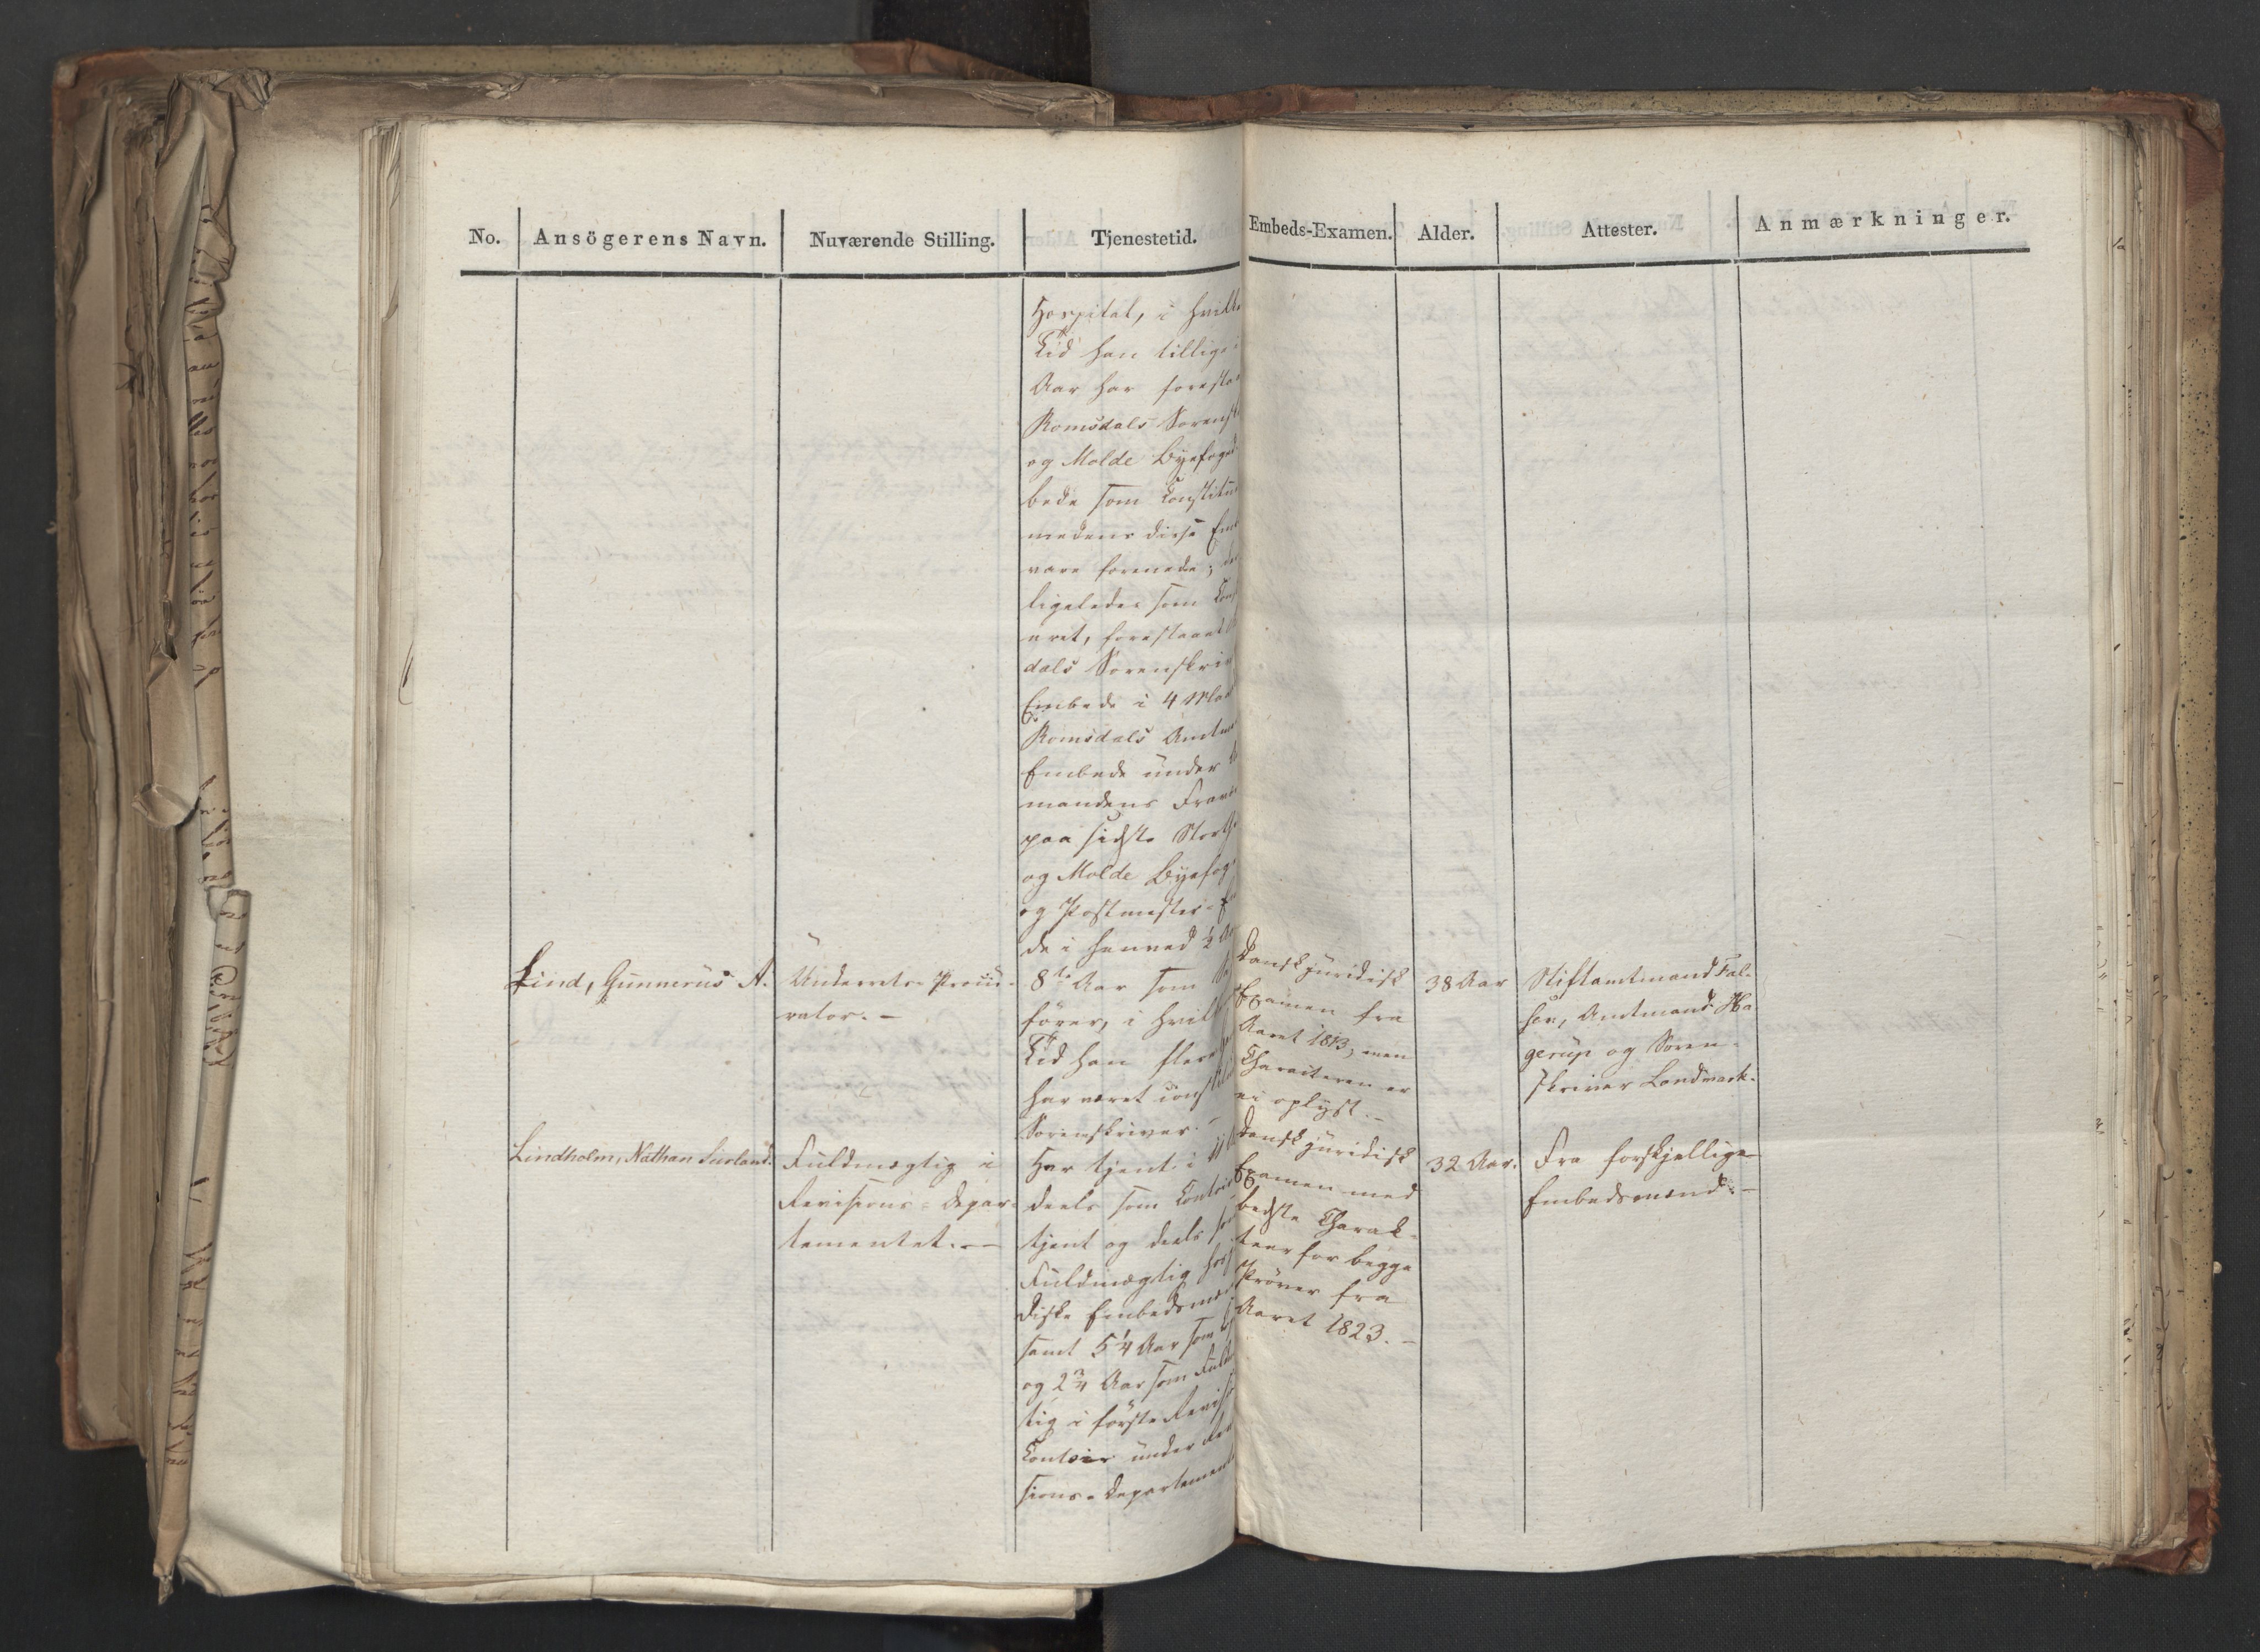 No.
Ansögerens Navn.
Nuværende Stilling.
Tjenestetid.
Embeds-Examen.
Alder.
Attester.
Anmærkninger.
Hospital, i hvilke
Tid han tillige i
Aar har foresta
Romsdals Sorensk
og Molde Byefoged
bede som Constitu
medens disse Em
vare forenede;
ligeledes som Const
eret, forestaaet
dals Sorenskriv
Embede i 4 Maa
Romsdals Amtm
Embede under
mandens Fravæ
paa sidste Storth
og Molde Byefog
og Postmester-E
de i henved ½ Aa
Lind, Gunnerus A.
Underrets-Procu-
rator. –
8de Aar som Sag
förer, i hvilken
Tid han flere
har været constitu
Sorenskriver. –
Dansk juridisk
Examen fra
Aaret 1813, men
Charakteren er
ei oplyst. –
38 Aar
Stiftamtmand Fal-
sen, Amtmand Ha
gerup og Soren-
skriver Landmark.
Lindholm, Nathan
Fuldmægtig i
Revisions-Depar-
tementet. –
Har tjent i
deels som Contoir
tjent og deels som
Fuldmægtig hos
diske Embedsmæ
samt 5¼ Aar som
og 2¾ Aar som Fuldm
tig i første Revis
Contoir under Rev
sions-Departement
Dansk juridisk
Examen med
bedste Charak-
teer for begge
Prøver fra
Aaret 1823. –
32 Aar.
Fra forskjellige
Embedsmænd. –